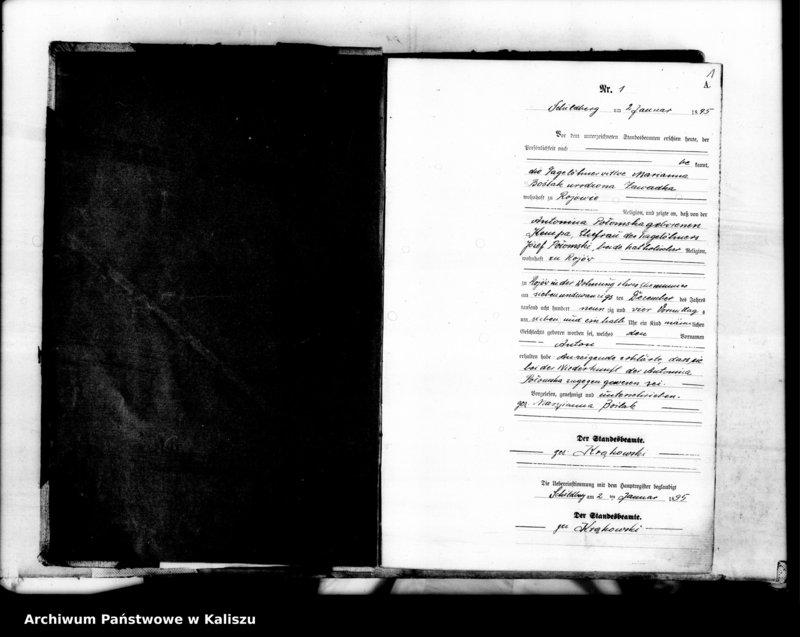 1
A.
Nr. 1
Schildberg am 2 Januar 1895
Vor dem unterzeichneten Standesbeamten erschien heute, der
Persönlichkeit nach
be kannt,
die Tagelöhnerwittwe Marianna
Boślak urodzona Zawadka
wohnhaft zu Rojowie
Religion, und zeigte an, daß von der
Antonina Połomska geborenen
Kempa, Ehefrau des Tagelöhners
Josef Połomski, beide katholischer Religion,
wohnhaft zu Rojów
zu Rojów in der Wohnung ihres Ehemannes
am siebenundzwanzigs ten December des Jahres
tausend acht hundert neun zig und vier Vormittag s
um sieben und ein halb Uhr ein Kind männ lichen
Geschlechts geboren worden sei, welches den Vornamen
Anton
erhalten habe Anzeigende erklärte, dass sie
bei der Niederkunft der Antonina
Połomska zugegen gewesen sei.
Vorgelesen, genehmigt und unterschrieben.
gez Maryianna Boślak
Der Standesbeamte.
gez Krąkowski
Die Uebereinstimmung mit dem Hauptregister beglaubigt
Schildberg am 2 ten Januar 1895
Der Standesbeamte.
gez Krąkowski
Archiwum Państwowe w Kaliszu